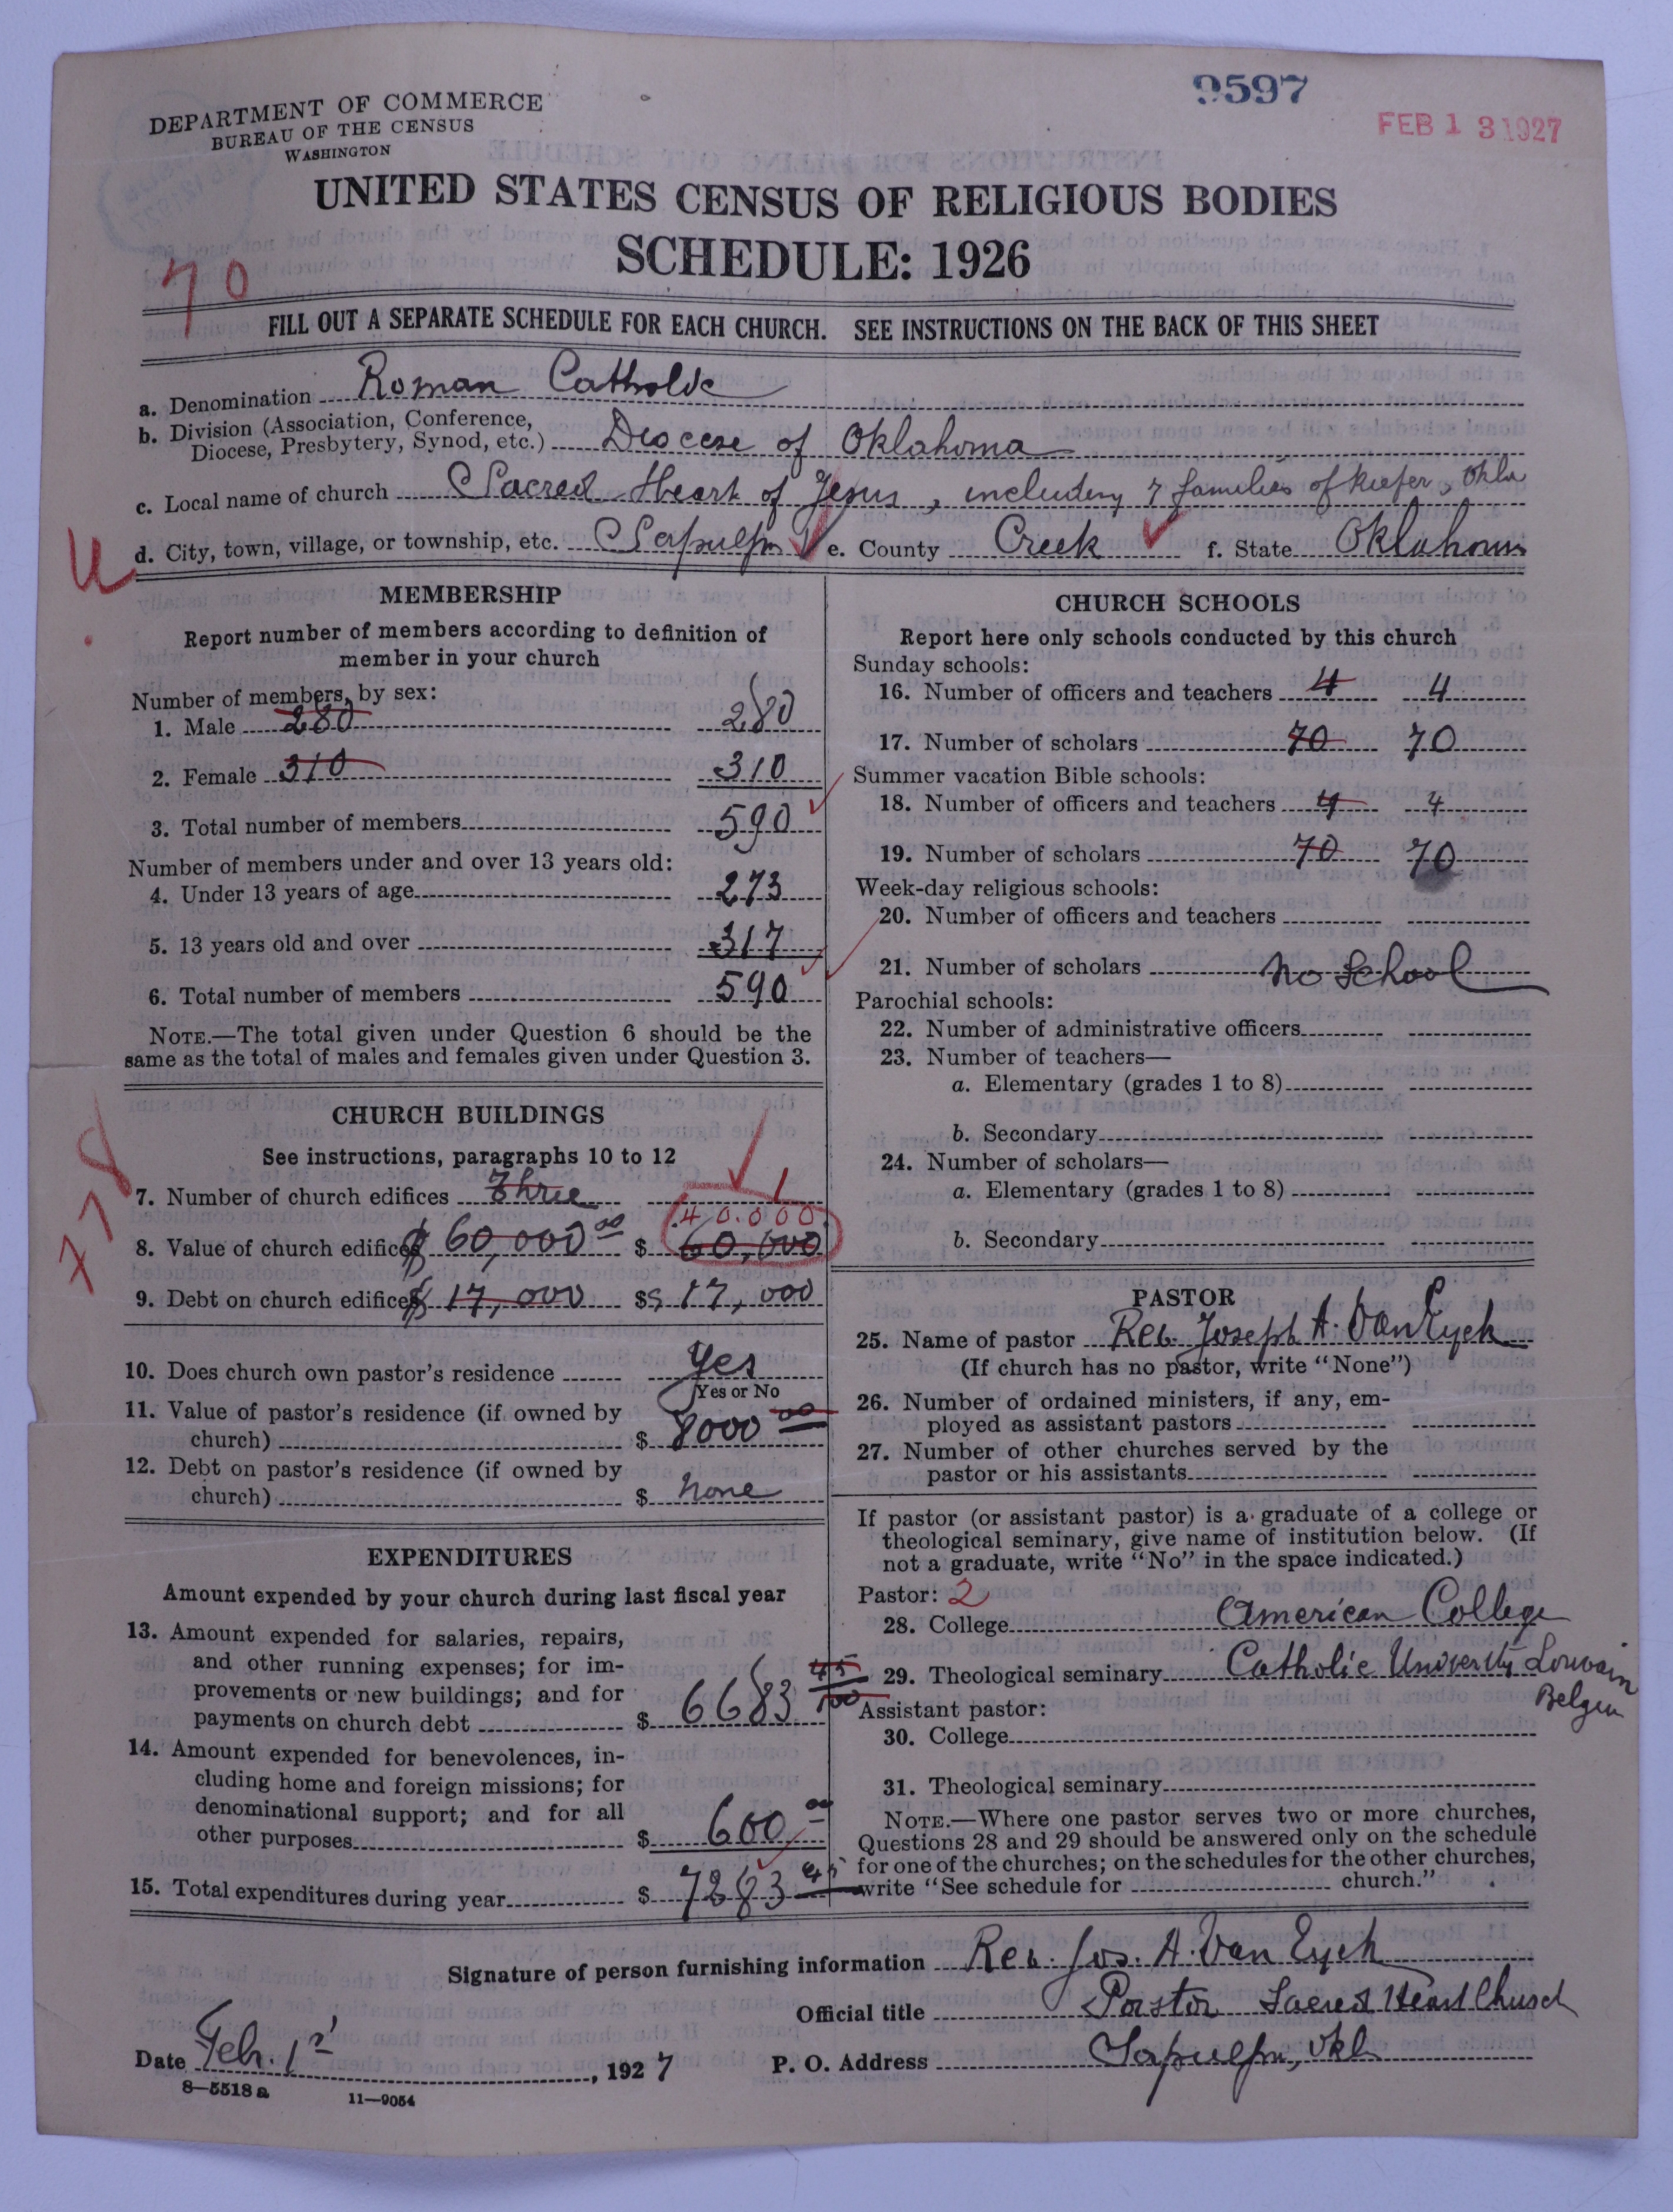 9597
FEB 13 1927
DEPARTMENT OF COMMERCE
BUREAU OF THE CENSUS
WASHINGTON
UNITED STATES CENSUS OF RELIGIOUS BODIES
SCHEDULE: 1926
70
FILL OUT A SEPARATE SCHEDULE FOR EACH CHURCH. SEE INSTRUCTIONS ON THE BACK OF THIS SHEET
a. Denomination Roman Catholic
b. Division (Association, Conference,
Diocese, Presbytery, Synod, etc.) Diocese of Oklahoma
c. Local name of church Sacred Heart of Jesus, including 7 families of Kiefer, Okla
d. City, town, village, or township, etc. Sapulpa e. County Creek f. State Oklahoma
U
MEMBERSHIP
Report number of members according to definition of
member in your church
Number of members, by sex:
1. Male 280 280
2. Female 310 310
3. Total number of members 590
Number of members under and over 13 years old:
4. Under 13 years of age 273
5. 13 years old and over 317
6. Total number of members 590
NOTE.—The total given under Question 6 should be the
same as the total of males and females given under Question 3.
CHURCH BUILDINGS
See instructions, paragraphs 10 to 12
778
7. Number of church edifices Three 1
40.000
8. Value of church edifices $ 60,000 00 $ 60,000
9. Debt on church edifices $ 17,000 $ $ 17,000
10. Does church own pastor's residence Yes
Yes or No
11. Value of pastor's residence (if owned by
church) $ 8000 00
12. Debt on pastor's residence (if owned by
church) $ none
EXPENDITURES
Amount expended by your church during last fiscal year
13. Amount expended for salaries, repairs,
and other running expenses; for im-
provements or new buildings; and for
payments on church debt $ 6683 45/100
14. Amount expended for benevolences, in-
cluding home and foreign missions; for
denominational support; and for all
other purposes $ 600 00
15. Total expenditures during year $ 7283 45
CHURCH SCHOOLS
Report here only schools conducted by this church
Sunday schools:
16. Number of officers and teachers 4 4
17. Number of scholars 70 70
Summer vacation Bible schools:
18. Number of officers and teachers 4 4
19. Number of scholars 70 70
Week-day religious schools:
20. Number of officers and teachers
21. Number of scholars no school
Parochial schools:
22. Number of administrative officers
23. Number of teachers—
a. Elementary (grades 1 to 8)
b. Secondary
24. Number of scholars—
a. Elementary (grades 1 to 8)
b. Secondary
PASTOR
25. Name of pastor Rev. Joseph A. Van Eyck
(If church has no pastor, write "None")
26. Number of ordained ministers, if any, em-
ployed as assistant pastors
27. Number of other churches served by the
pastor or his assistants
If pastor (or assistant pastor) is a graduate of a college or
theological seminary, give name of institution below. (If
not a graduate, write "No" in the space indicated.)
Pastor: 2
28. College American College
29. Theological seminary Catholic University Louvain
Belgium
Assistant pastor:
30. College
31. Theological seminary
NOTE.—Where one pastor serves two or more churches,
Questions 28 and 29 should be answered only on the schedule
for one of the churches; on the schedules for the other churches,
write "See schedule for church."
Signature of person furnishing information Rev. Jos. A. Van Eyck
Official title Pastor Sacred Heart Church
Date Feb. 1st, 1927 P. O. Address Sapulpa, Okl
8—5518a 11—9054